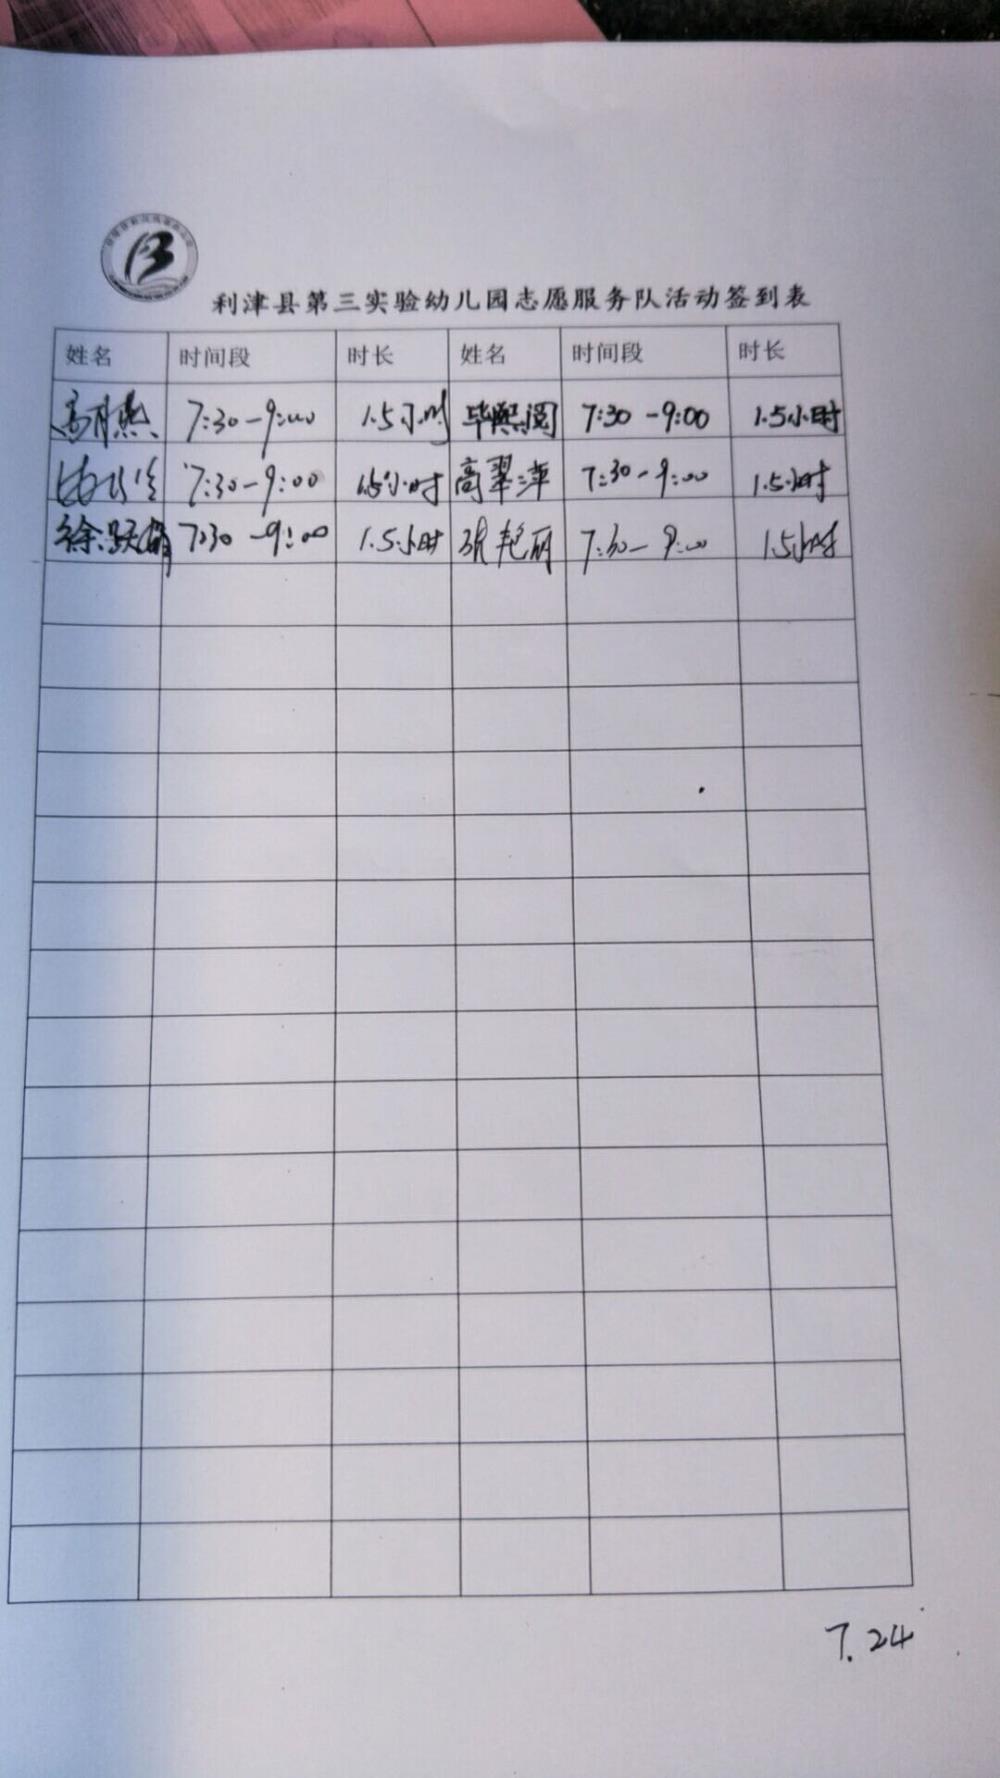 利津县第三实验幼儿园志愿服务队活动签到表
姓名 时间段 时长 姓名 时间段 时长
高月燕 7:30-9:00 1.5小时 毕熙阅 7:30-9:00 1.5小时
7:30-9:00 1.5小时 高翠萍 7:30-9:00 1.5小时
徐跃娟 7:30-9:00 1.5小时 张艳丽 7:30-9:00 1.5小时
7.24